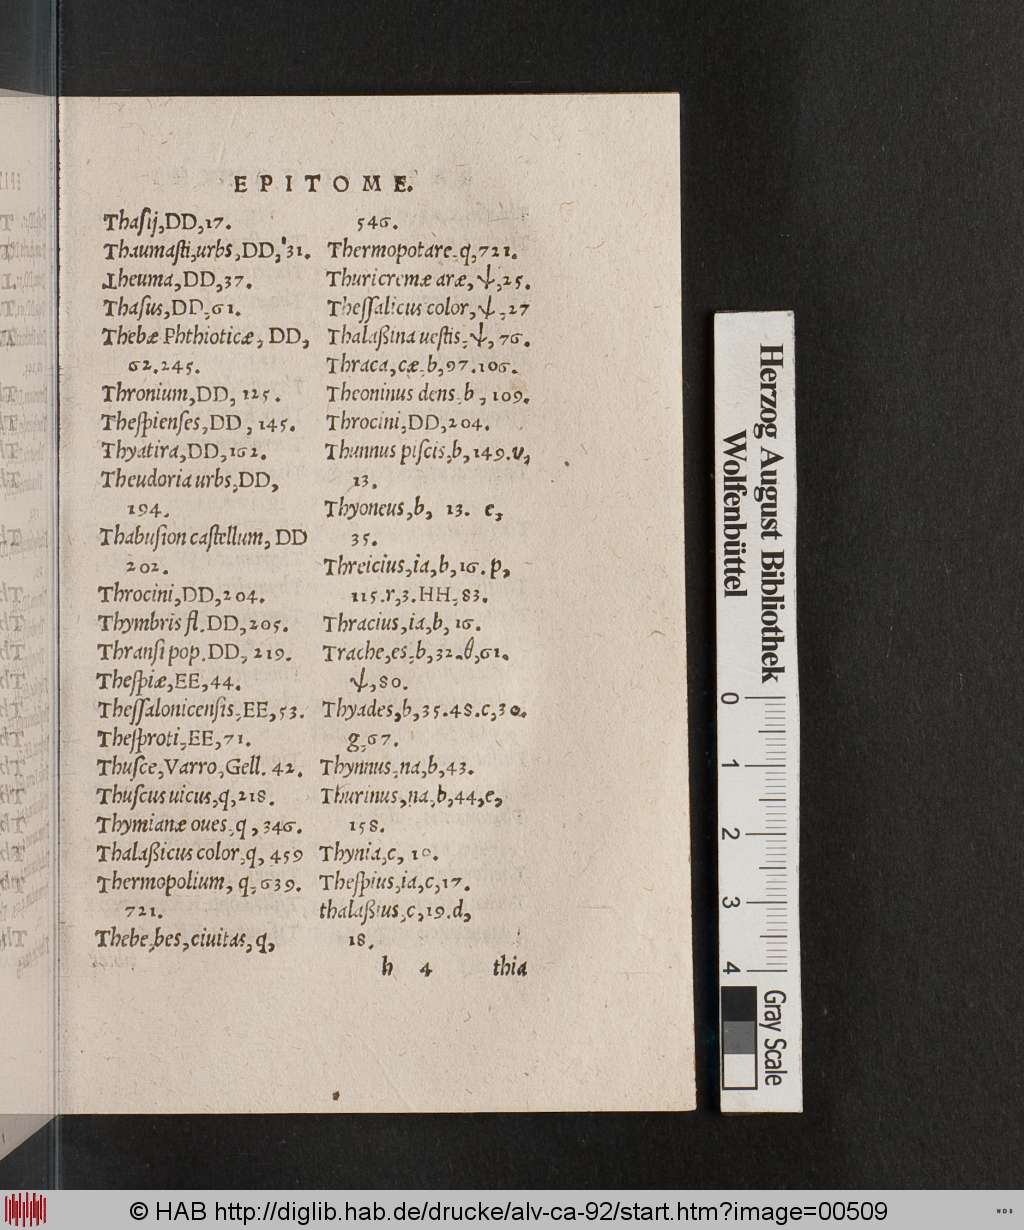 EPITOME.
Thaſij,DD,17.
Thaumaſti,urbs,DD,'31.
Theuma,DD,37.
Thaſus,DD,61.
Thebæ Phthioticæ, DD,
62.245.
Thronium,DD, 125.
Theſpienſes,DD, 145.
Thyatira,DD,162.
Theudoria urbs,DD,
194.
Thabuſion caſtellum, DD
202.
Throcini,DD,204.
Thymbris fl.DD,205.
Thranſi pop.DD, 219.
Theſpiæ,EE,44.
Theſſalonicenſis,EE,53.
Theſproti,EE,71.
Thuſce,Varro,Gell. 42.
Thuſcus uicus,q,218.
Thymianæ oues,q, 346.
Thalaßicus color,q, 459
Thermopolium, q,639.
721.
Thebe,bes,ciuitas,q,
546.
Thermopotare,q,721.
Thuricremæ aræ,ψ,25.
Theſſalicus color,ψ,27
Thalaßina ueſtis,ψ, 76.
Thraca,cæ,b,97.106.
Theoninus dens,b, 109.
Throcini,DD,204.
Thunnus piſcis,b,149.v,
13.
Thyoneus,b, 13. e,
35.
Threicius,ia,b,16.p,
115.r,3.HH,83.
Thracius,ia,b,16.
Trache,es,b,32.θ,61.
ψ,80.
Thyades,b,35.48.c,30.
g,67.
Thynnus,na,b,43.
Thurinus,na,b,44,e,
158.
Thynia,c, 10.
Theſpius,ia,c,17.
thalaßius,c,19.d,
18.
h 4 thia
Herzog August Bibliothek
Wolfenbüttel
0 1 2 3 4
Gray Scale
© HAB http://diglib.hab.de/drucke/alv-ca-92/start.htm?image=00509